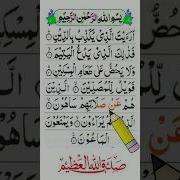 بِسْمِ اللهِ الرَّحْمٰنِ الرَّحِيْمِ
اَرَءَيْتَ الَّذِيْ يُكَذِّبُ بِالدِّيْنِ
فَذٰلِكَ الَّذِيْ يَدُعُّ الْيَتِيْمَ
وَلَا يَحُضُّ عَلٰى طَعَامِ الْمِسْكِيْنِ
فَوَيْلٌ لِّلْمُصَلِّيْنَ الَّذِيْنَ
هُمْ عَنْ صَلَاتِهِمْ سَاهُوْنَ
الَّذِيْنَ هُمْ يُرَآءُوْنَ وَيَمْنَعُوْنَ
الْمَاعُوْنَ
صَدَقَ اللهُ الْعَظِيْم